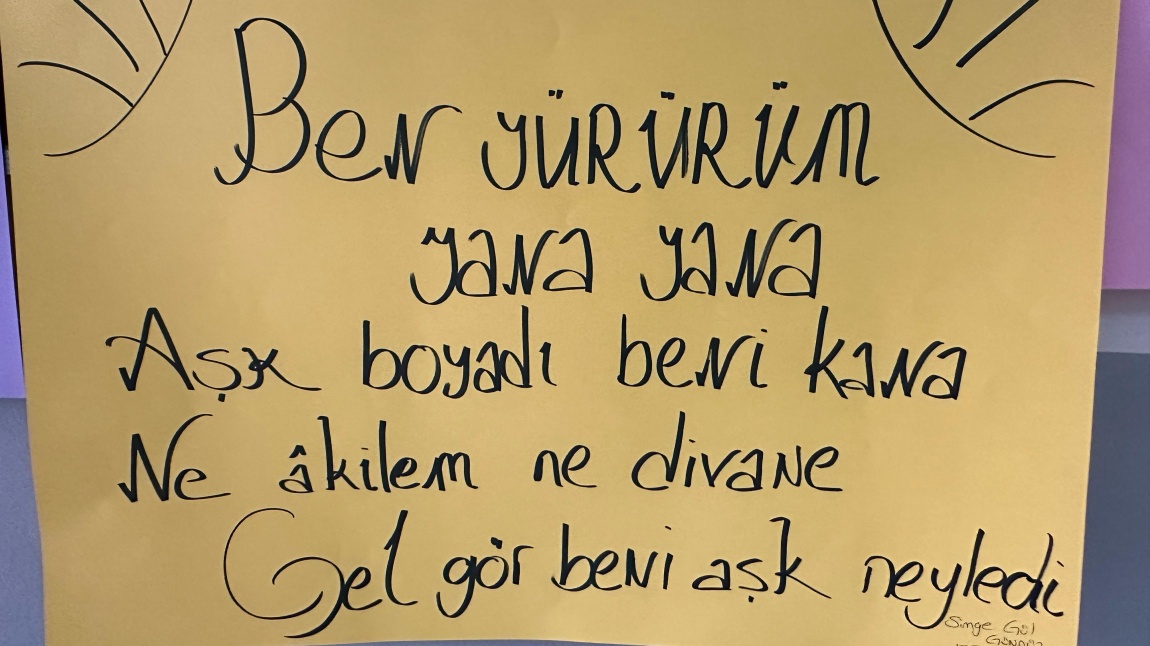 Ben yürürüm
yana yana
Aşk boyadı beni kana
Ne âkilem ne divane
Gel gör beni aşk neyledi
Simge Gül